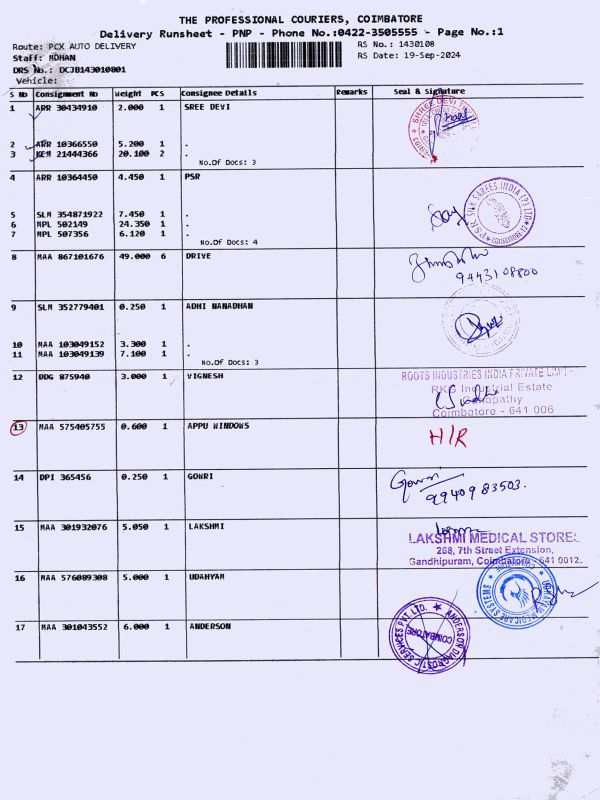 THE PROFESSIONAL COURIERS, COIMBATORE
Delivery Runsheet - PNP - Phone No.:0422-3505555 - Page No.:1
Route: PCX AUTO DELIVERY
RS No.: 1430108
Staff: MOHAN
RS Date: 19-Sep-2024
DRS No.: DCJB143010801
Vehicle:
S No Consignment No Weight PCS Consignee Details Remarks Seal & Signature
1 ARR 30434910 2.000 1 SREE DEVI
2 ARR 10366550 5.200 1 .
3 KEM 21444366 20.100 2 .
No.Of Docs: 3
4 ARR 10364450 4.450 1 PSR
5 SLM 354871922 7.450 1 .
6 MPL 502149 24.350 1 .
7 MPL 507356 6.120 1 .
No.Of Docs: 4
8 MAA 867101676 49.000 6 DRIVE
9443108800
9 SLM 352779401 0.250 1 ADHI NANADHAN
10 MAA 103049152 3.300 1 .
11 MAA 103049139 7.100 1 .
No.Of Docs: 3
12 DDG 875940 3.000 1 VIGNESH
ROOTS INDUSTRIES INDIA PRIVATE
RKG Industrial Estate
Coimbatore - 641 006
13 MAA 575405755 0.600 1 APPU WINDOWS
H/R
14 DPI 365456 0.250 1 GOWRI
Gowri
9940983503.
15 MAA 301932076 5.050 1 LAKSHMI
LAKSHMI MEDICAL STORES
268, 7th Street Extension,
Gandhipuram, Coimbatore - 641 0012.
16 MAA 576089308 5.000 1 UDAHYAM
17 MAA 301043552 6.000 1 ANDERSON
ANDERSON DIAGNOSTIC SERVICES PVT. LTD.
COIMBATORE